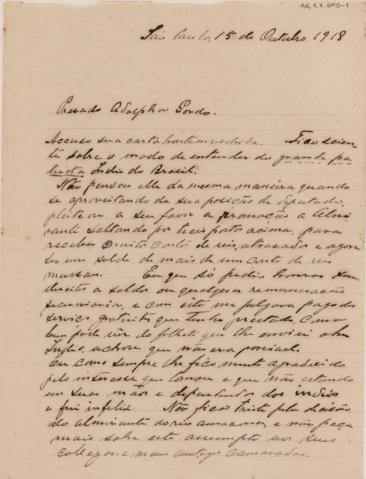 São Paulo, 15 de Outubro 1918
Presado Adolpho Gordo.
Accuso sua carta hontem recebida. Fico scien
te sobre o modo de entender do grande pa
triota Indio do Brasil.
Não pensou elle da mesma maneira quando
se aproveitando da sua posição de deputado,
pleiteou a seu favor a promoção a almi
rante saltando por tres postos acima, para
receber muito conto de reis, atrasados e agora
ser um soldo de mais de um conto de reis
mensaes. Eu que só pedi honras sem
direito a soldo ou qualquer remuneração
pecuniaria, e com isto me julgava pago dos
serviços gratuitos que tenho prestado como
bem pode ver do folheto que lhe enviei o
Indio, achou que não era possivel.
Eu como sempre lhe fico muito agradecido
pelo interesse que tomou e que não estando
em suas mãos e dependendo dos indios
fui infeliz. Não fico triste pela decisão
do almirante do rio amazonas, e não peça
mais sobre este assumpto aos seus
collegas e meus antigos camaradas.